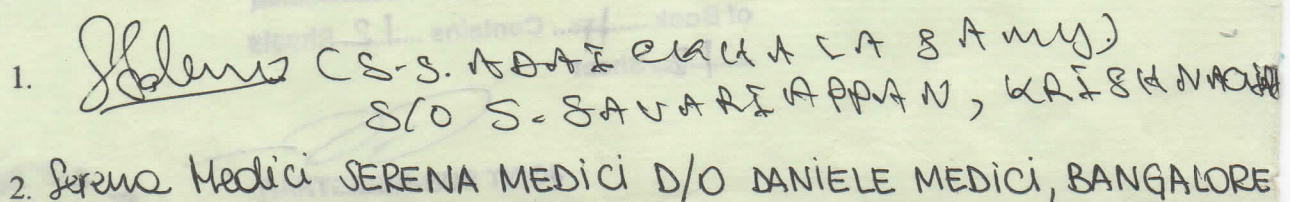 1. (S-S. ADAICKKALASAMY)
S/O S. SAVARIAPPAN, KRISHNAGIRI
2. Serena Medici SERENA MEDICI D/O DANIELE MEDICI, BANGALORE